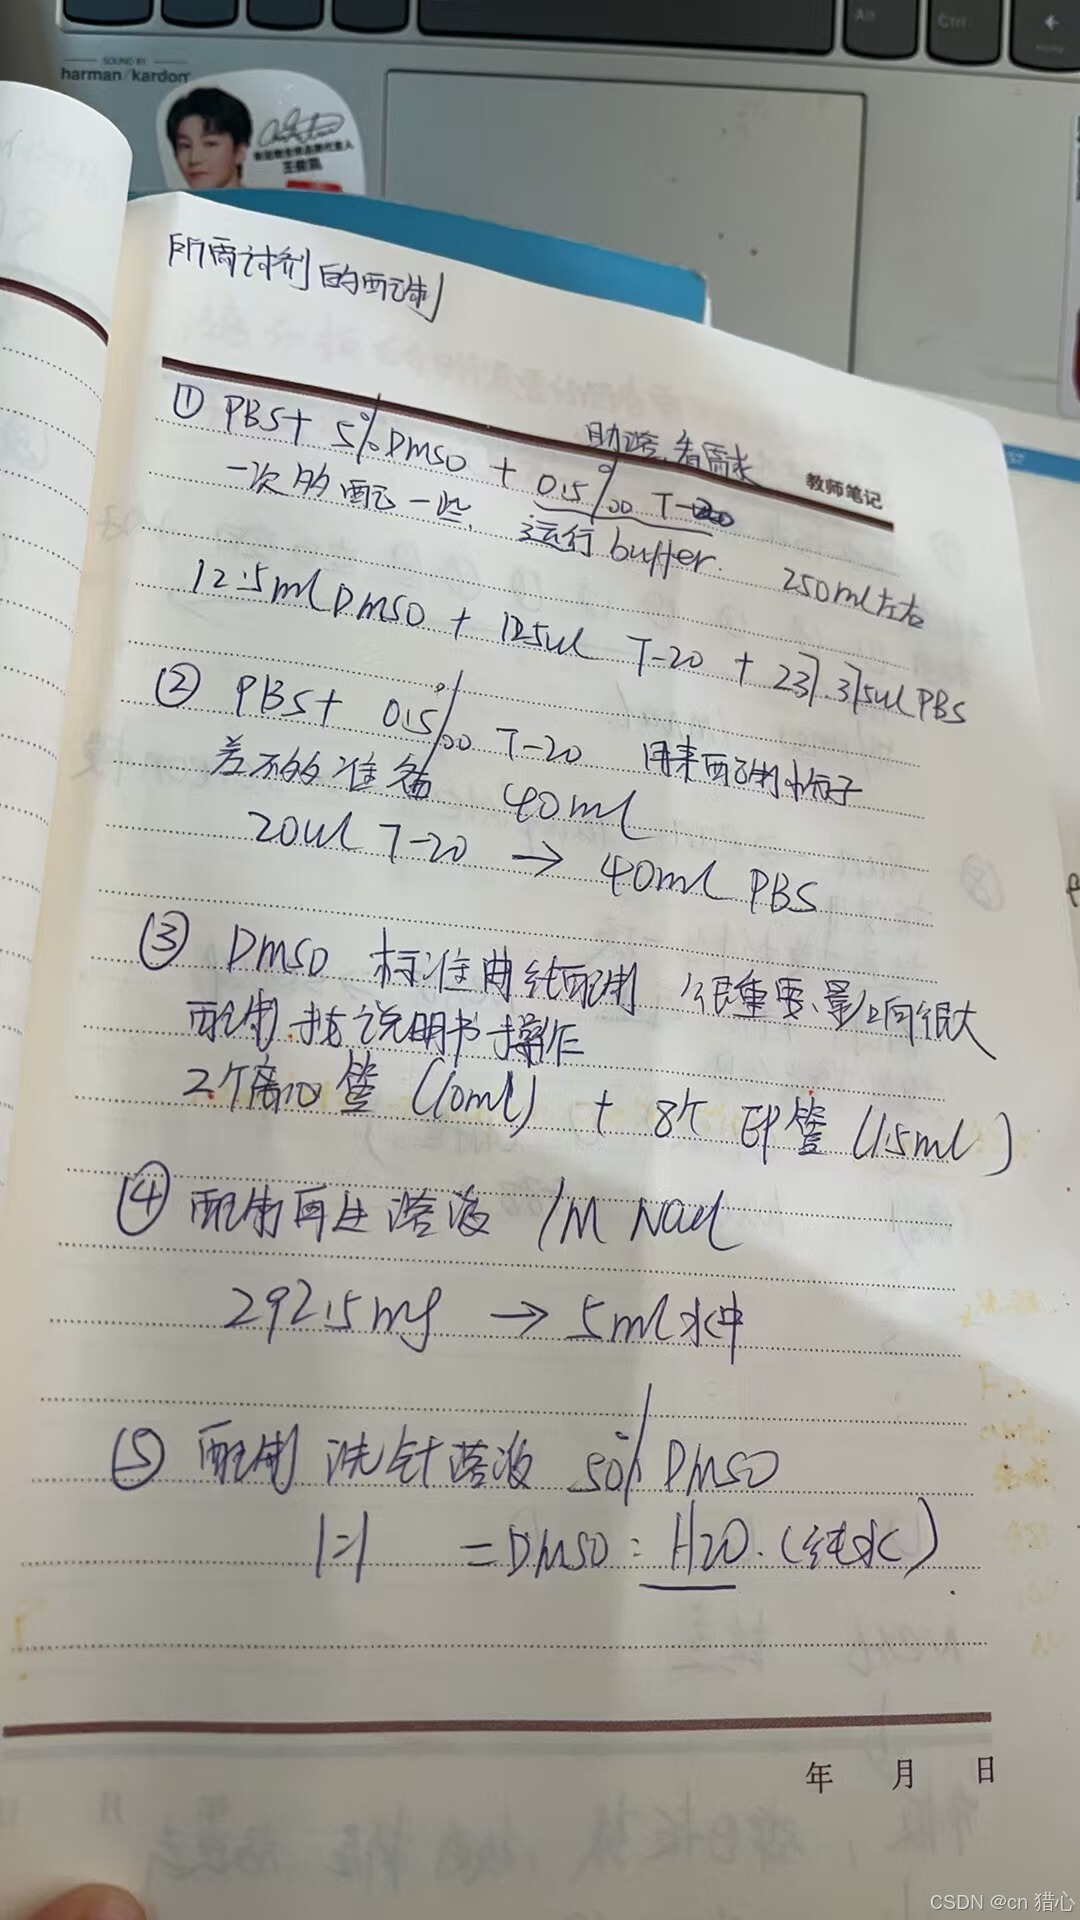 Alt
Ctrl
Home
SOUND BY
harman/kardon
王俊凯
所需试剂的配制
助溶,看需求
教师笔记
① PBS+ 5%DMSO + 0.5‰ T-20
一次多配一些, 运行buffer. 250ml左右
12.5ml DMSO + 125ul T-20 + 237.375ul PBS
② PBS+ 0.5‰ T-20 用来配制小分子
差不多准备 40ml
20ul T-20 → 40ml PBS
③ DMSO 标准曲线配制 很重要,影响很大
配制.按说明书操作
2个离心管 (10ml) + 8个 EP管 (1.5ml)
④ 配制再生溶液 1M NaCl
292.5mg → 5ml水中
⑤ 配制 洗针溶液 50% DMSO
1:1 = DMSO : H2O. (纯水)
年 月 日
CSDN @cn 猎心